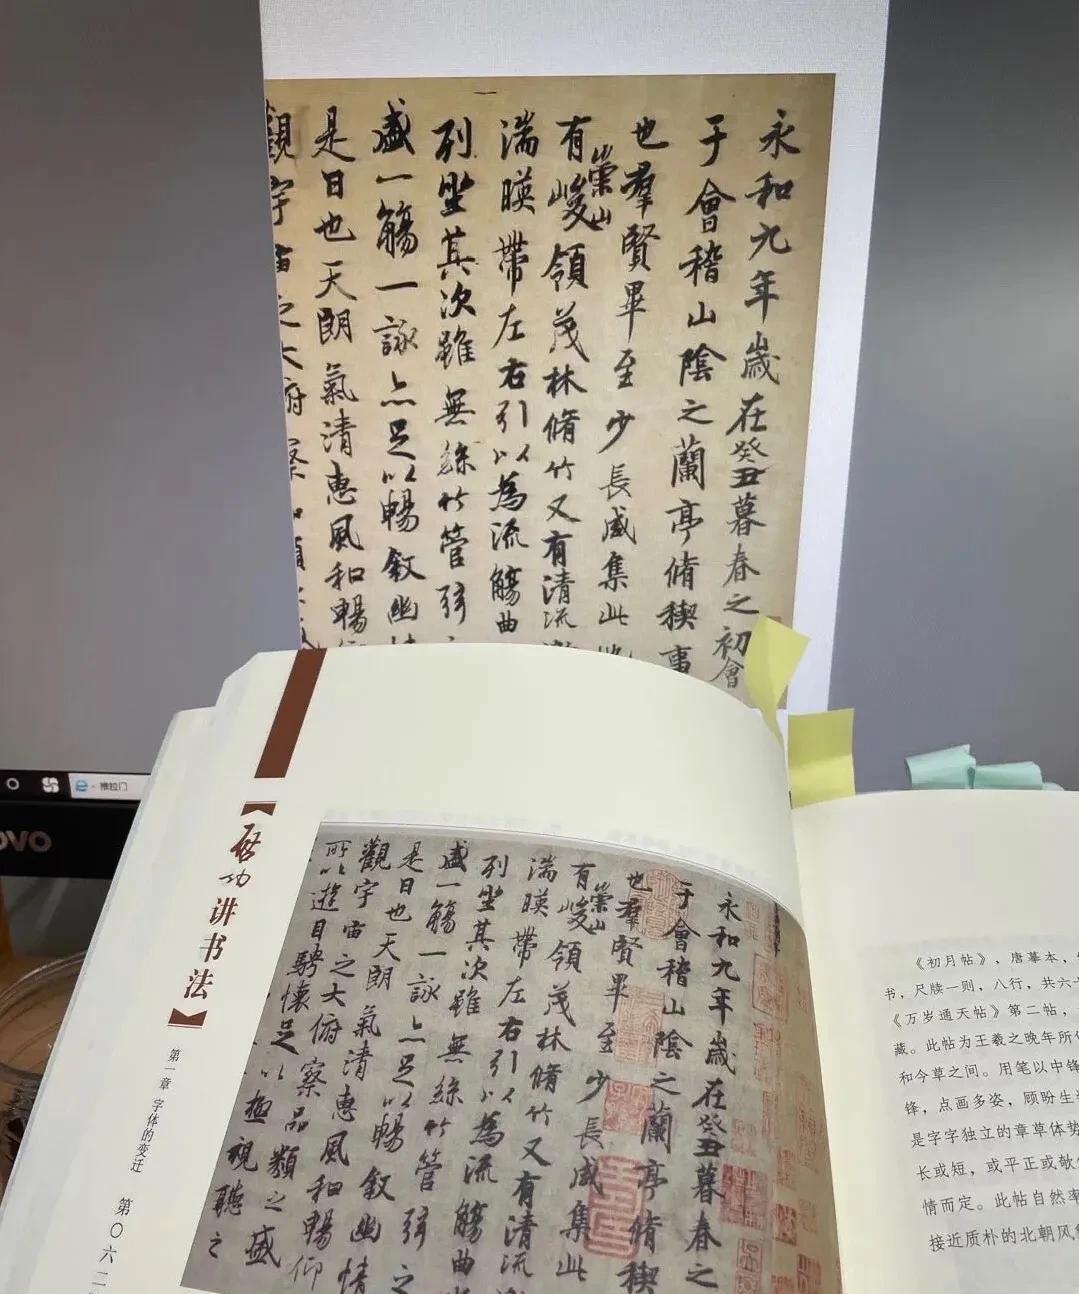 永和九年歲在癸丑暮春之初會
于會稽山陰之蘭亭脩稧事
也羣賢畢至少長咸集此地
有崇山峻領茂林脩竹又有清流激
湍暎帶左右引以為流觴曲
列坐其次雖無絲竹管弦之
盛一觴一詠亦足以暢敘幽情
是日也天朗氣清惠風和暢仰
觀宇宙之大俯察品類之盛
推拉门
【启功讲书法】
第一章 字体的变迁
第〇六二
永和九年歲在癸丑暮春之
于會稽山陰之蘭亭脩稧
也羣賢畢至少長咸集此
有崇山峻領茂林脩竹又有清流
湍暎帶左右引以為流觴曲
列坐其次雖無絲竹管弦之
盛一觴一詠亦足以暢敘幽情
是日也天朗氣清惠風和暢仰
觀宇宙之大俯察品類之盛
所以遊目騁懷足以極視聽之
《初月帖》，唐摹本，
书，尺牍一则，八行，共六十
《万岁通天帖》第二帖，
藏。此帖为王羲之晚年所作
和今草之间。用笔以中锋
锋，点画多姿，顾盼生
是字字独立的章草体势
长或短，或平正或欹
情而定。此帖自然率
接近质朴的北朝风